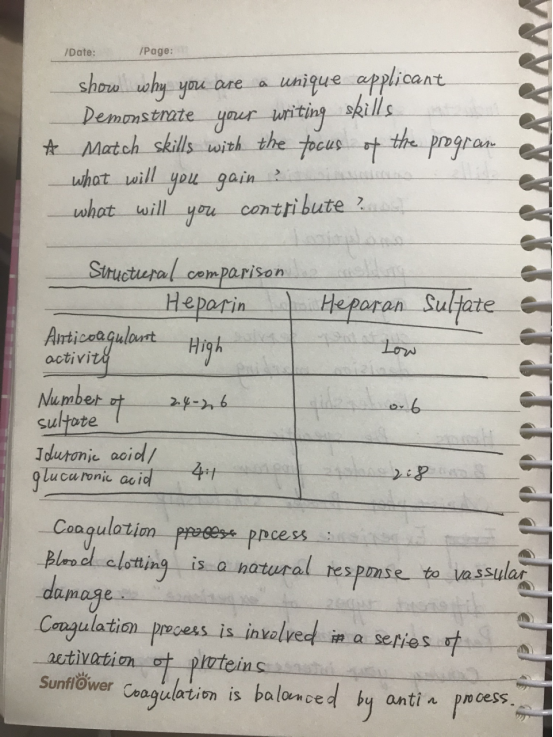 /Date: /Page:
show why you are a unique applicant
Demonstrate your writing skills
☆ Match skills with the focus of the program
what will you gain?
what will you contribute?
Structural comparison
Heparin Heparan Sulfate
Anticoagulant activity High Low
Number of sulfate 2.4-2.6 0.6
Iduronic acid/ glucuronic acid 4:1 2:8
Coagulation process process :
Blood clotting is a natural response to vassular
damage.
Coagulation process is involved in a series of
activation of proteins
Sunflower Coagulation is balanced by anti ~ process.